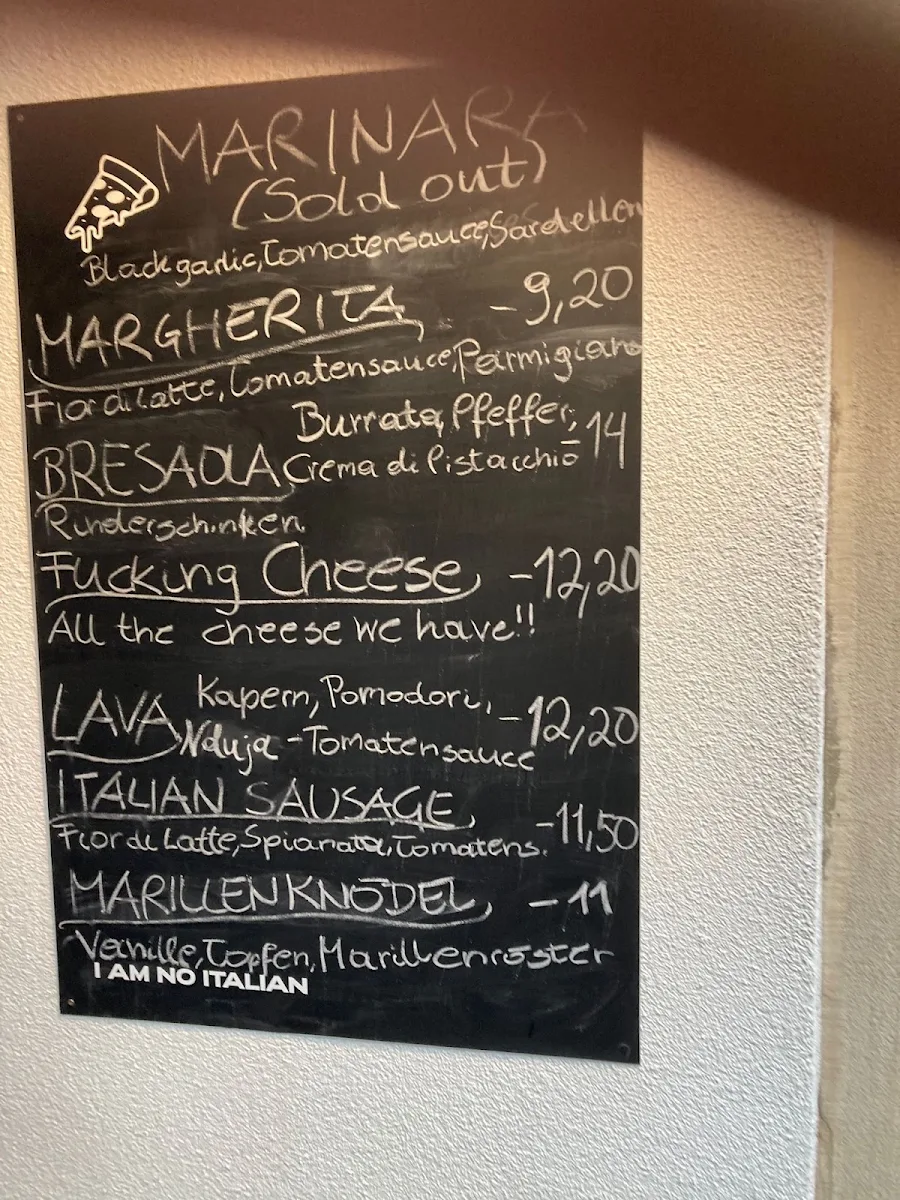 MARINARA
(Sold out)
Black garlic, Tomatensauce, Sardellen
MARGHERITA - 9,20
Fior di Latte, Tomatensauce, Parmigiano
Burrata, Pfeffer,
BRESAOLA Crema di Pistacchio - 14
Rinderschinken
Fucking Cheese - 12,20
All the cheese we have!!
Kapern, Pomodori,
LAVA Nduja - Tomatensauce - 12,20
ITALIAN SAUSAGE - 11,50
Fior di Latte, Spianata, Tomatens.
MARILLENKNÖDEL - 11
Vanille, Topfen, Marillenröster
I AM NO ITALIAN